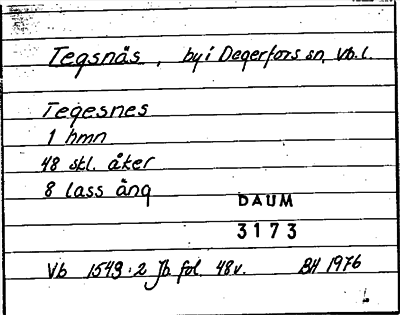 Tegsnäs, by i Degerfors sn, Vb.l.
Tegesnes
1 hmn
48 skl. åker
8 lass äng
DAUM
3173
Vb 1549:2 Jb fol. 48v. BH 1976